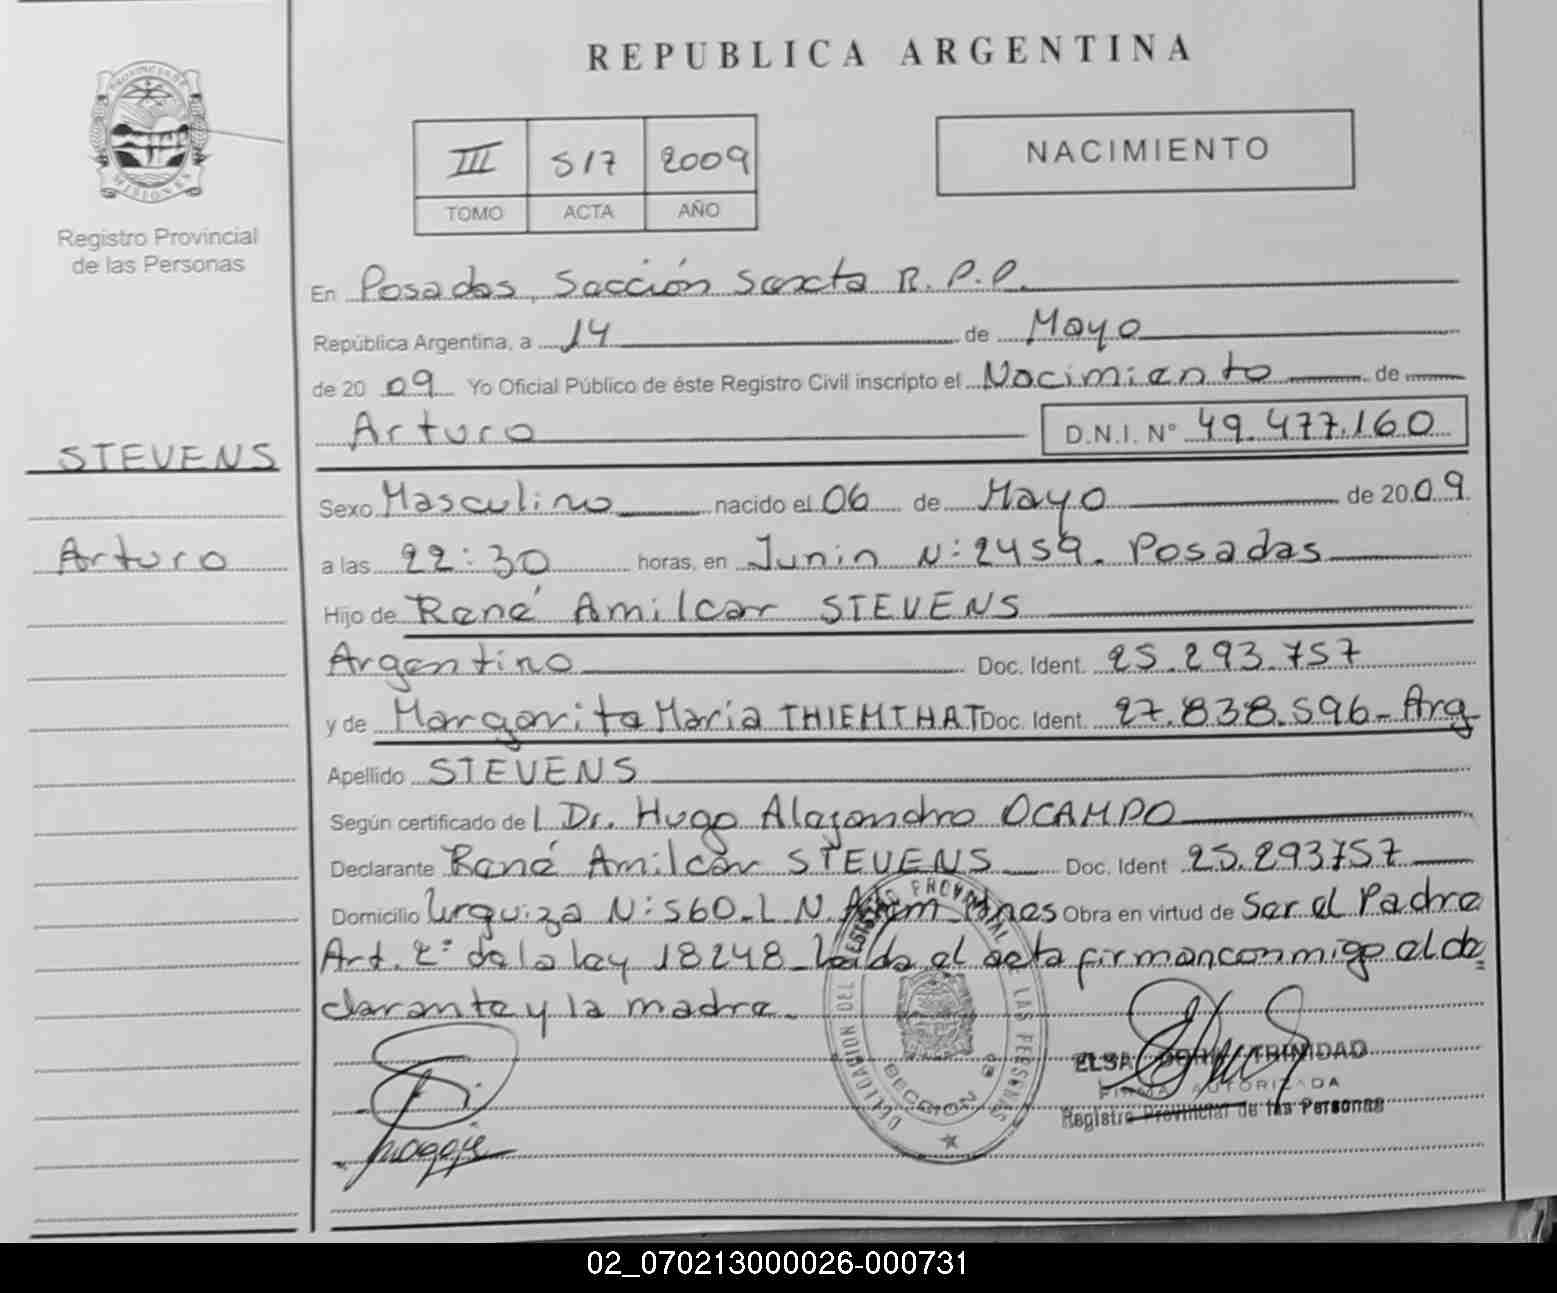 REPUBLICA ARGENTINA
PROVINCIA DE
MISIONES
Registro Provincial
de las Personas
III 517 2009
TOMO ACTA AÑO
NACIMIENTO
En Posadas, Sección Sexta R.P.P.
República Argentina, a 14 de Mayo
de 2009 Yo Oficial Público de éste Registro Civil inscripto el Nacimiento de
Arturo D.N.I. N° 49.477.160
STEVENS
Arturo
Sexo Masculino nacido el 06 de Mayo de 2009
a las 22:30 horas, en Junin N: 2459. Posadas
Hijo de René Amilcar STEVENS
Argentino Doc. Ident. 25.293.757
y de Margarita Maria THIEMTHAT Doc. Ident. 27.838.596-Arg
Apellido STEVENS
Según certificado de l Dr. Hugo Alejandro OCAMPO
Declarante René Amilcar STEVENS Doc. Ident 25.293757
Domicilio Urquiza N: 560-L.N. Alem-Mnes Obra en virtud de Ser el Padre
Art. 2° de la ley 18248-Leida el acta firman conmigo el de=
clarante y la madre.
DELEGACION DEL REGISTRO PROVINCIAL DE LAS PERSONAS
SECCION 6a
ELSA TRINIDAD
FIRMA AUTORIZADA
Registro Provincial de las Personas
02_070213000026-000731